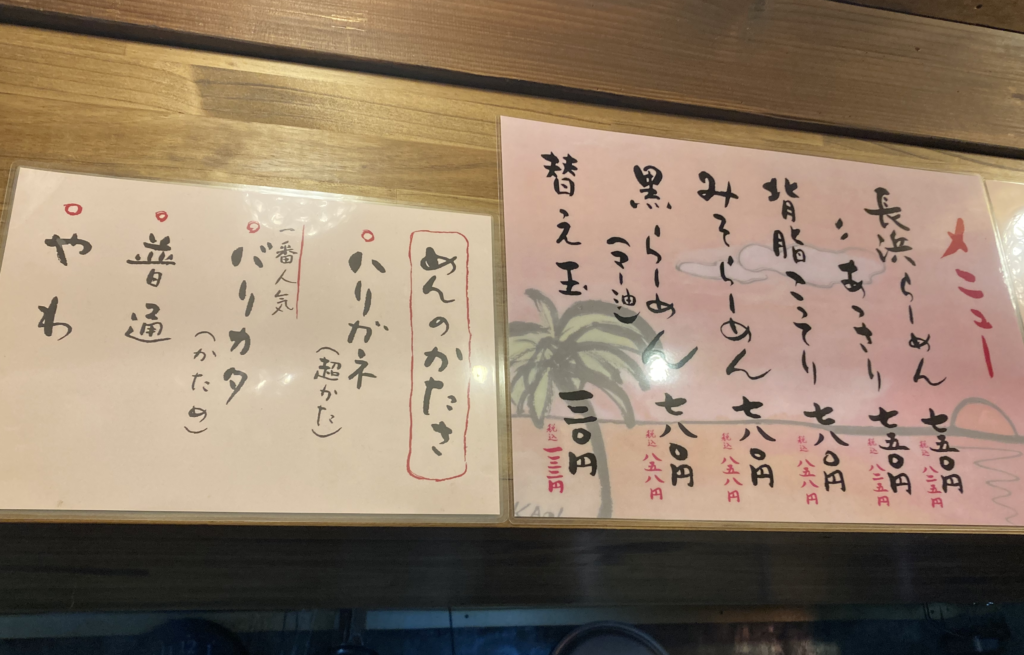 メニュー
長浜らーめん 七五〇円 税込 八二五円
〃 あっさり 七五〇円 税込 八二五円
背脂こってり 七八〇円 税込 八五八円
みそらーめん 七八〇円 税込 八五八円
黒らーめん 七八〇円 税込 八五八円
(マー油)
替え玉 一二〇円 税込 一三二円
めんのかたさ
ハリガネ
(超かた)
一番人気
バリカタ
(かため)
普通
やわ